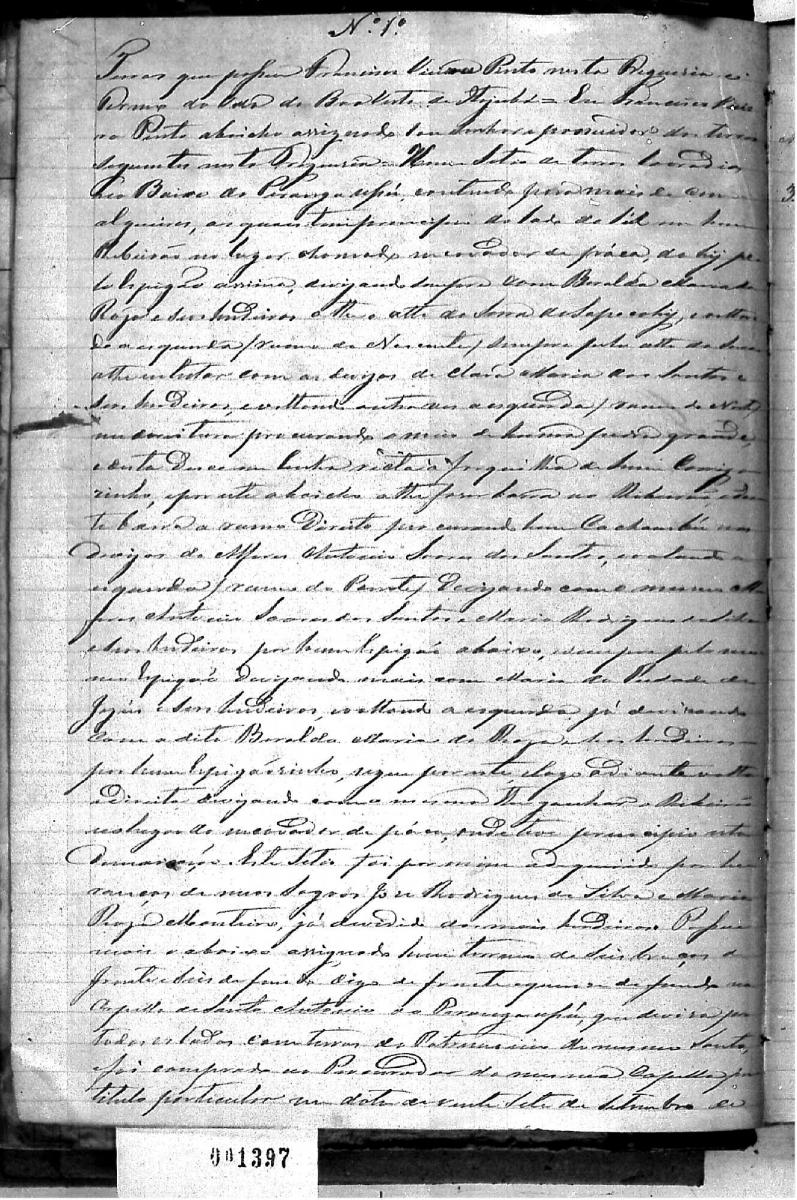 Nº 1º
Terras que possue Francisco Vieira Pinto nesta Freguezia e
Termo da Vª da Boa Vista de Itajubá = Eu Francisco Viei
ra Pinto abaixo assignado sou senhor e possuidor das terras
seguintes nesta Freguezia = Hum Sitio de terras lavradias
no Bairo do Piranguçú, contendo pôco mais de cem
alqueires, as quais tem principio do lado do Sul em hum
Ribeirão no lugar chamado mcoador de páca, dahi pe
lo espigão assima, devizando sempre com Beralda Maria da
Roza e seus herdeiros athe o alto da Serra do Sapocahy, e voltan
do a esquerda / rumo do Nascente / sempre pelo alto da Serra
athe entestar com as devizas de Clara Maria dos Santos e
seus herdeiros, e voltando outra ves a esquerda / rumo do Norte /
procurando o meio de huma pedra grande,
e desta Desce em linha recta a forquilha de hum Corrigo
zinho, e por este abaicho athe fazer barra no Ribeirão, e des
ta barra a rumo Direito percurando hum Cachambú nas
devizas do Alferes Antonio Soares dos Santos, e voltando a
esquerda / rumo do Poente / Devizando com o mesmo Al
feres Antonio Soares dos Santos e Maria Rodrigues da Silva
e seus herdeiros por hum espigão abaixo, e sempre pelo mes
mo Espigão Devizando mais com Maria da Piedade de
Jezus e seus herdeiros, voltando a esquerda já devizando
com a dita Beralda Maria da Roza e seus herdeiros
por hum espigãozinho, segue por este, e logo adiante volta
a Direita devizando com a mesma the ganhar o Ribeirão
no lugar do mcoador de páca, onde teve principio esta
Demarcação. Este Sitio foi por mim adquirido por he
ranças de meus Sogros José Rodrigues da Silva e Maria
Roza Monteiro, já devedido dos mais herdeiros. Possue
mais o abaixo assignado hum terreno de seis braças de
frente e seis de fundo digo de frente e quinze de fundo na
Capella de Santo Antonio do Piranguçú, que deviza por
todos os lados com terras do Patrimonio do mesmo Santo,
e foi comprado ao Procurador da mesma Capella por
titulo particular em data de vinte sete de Setembro de
001397